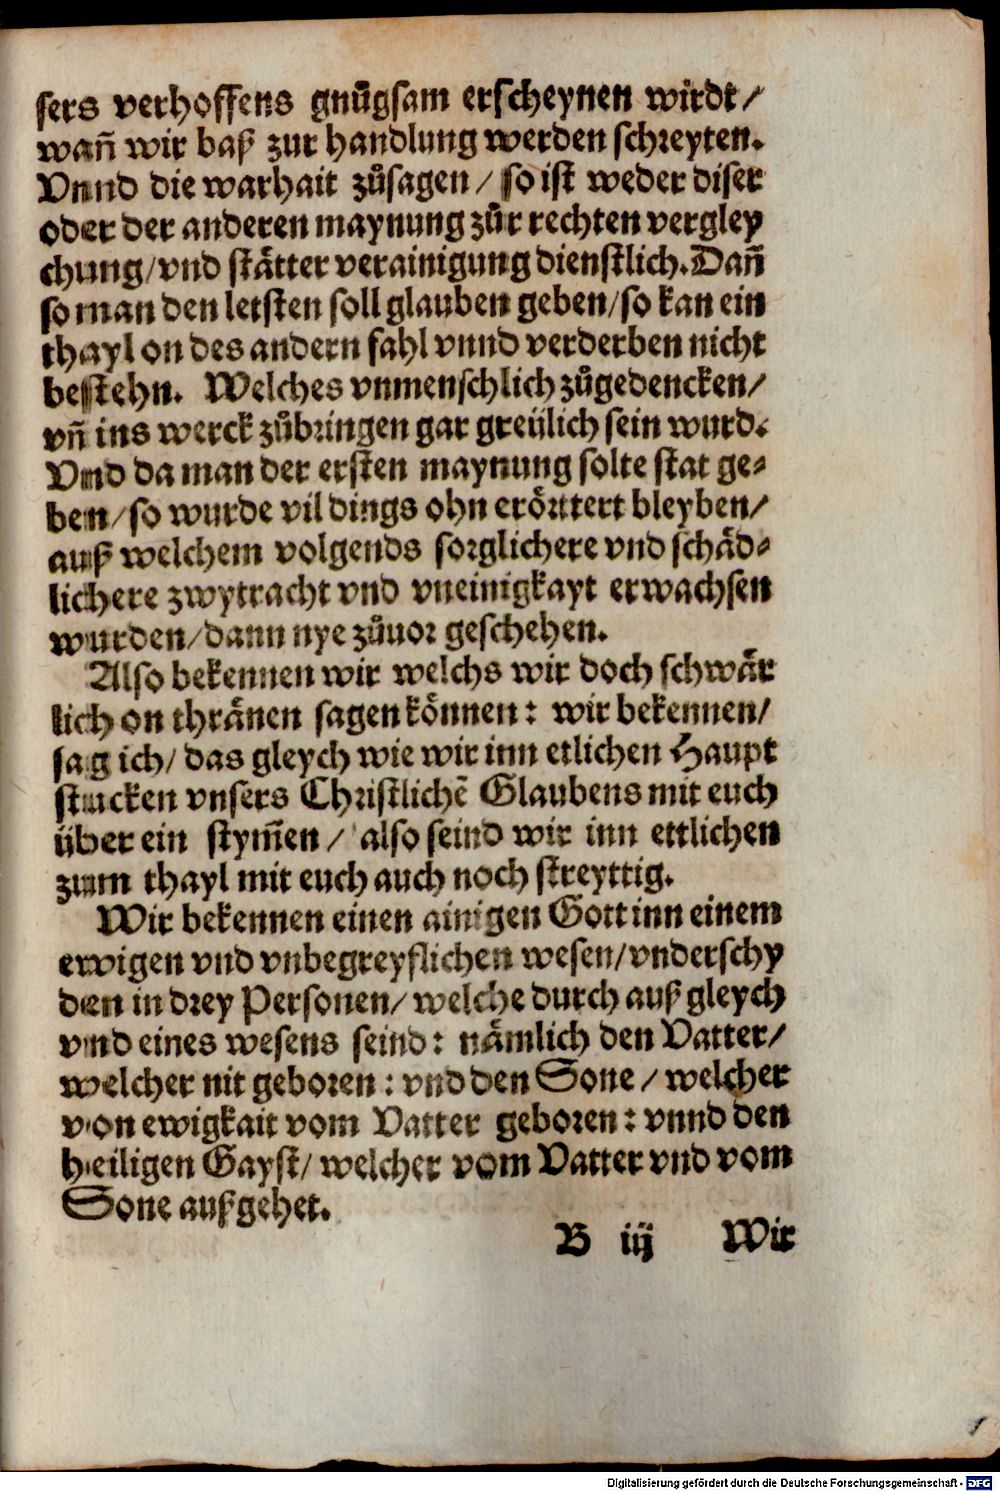 sers verhoffens gnůgsam erscheynen wirdt/
wañ wir baß zur handlung werden schreyten.
Vnnd die warhait zůsagen / so ist weder diser
oder der anderen maynung zůr rechten vergley
chung/vnd stätter verainigung dienstlich. Dañ
so man den letsten soll glauben geben/so kan ein
thayl on des andern fahl vnnd verderben nicht
bestehn. Welches vnmenschlich zůgedencken/
vñ ins werck zůbringen gar greülich sein wurd.
Vnd da man der ersten maynung solte stat ge⸗
ben/so wurde vil dings ohn erörttert bleyben/
auß welchem volgends sorglichere vnd schäd⸗
lichere zwytracht vnd vneinigkayt erwachsen
wurden/dann nye zůuor geschehen.
Also bekennen wir welchs wir doch schwär
lich on thränen sagen können: wir bekennen/
sag ich/ das gleych wie wir inn etlichen Haupt
stucken vnsers Christlichẽ Glaubens mit euch
über ein stym̃en / also seind wir inn ettlichen
zum thayl mit euch auch noch streyttig.
Wir bekennen einen ainigen Gott inn einem
ewigen vnd vnbegreyflichen wesen/vnderschy
den in drey Personen/ welche durch auß gleych
vnd eines wesens seind: nämlich den Vatter/
welcher nit geboren: vnd den Sone / welcher
von ewigkait vom Vatter geboren: vnnd den
heiligen Gayst/ welcher vom Vatter vnd vom
Sone außgehet.
B iij Wir
Digitalisierung gefördert durch die Deutsche Forschungsgemeinschaft - DFG